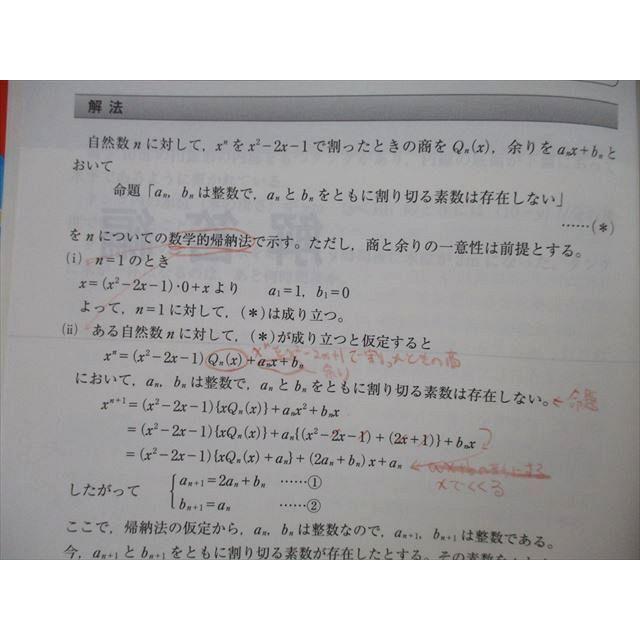 解法
自然数nに対して，xⁿをx²−2x−1で割ったときの商をQₙ(x)，余りをaₙx+bₙと
おいて
命題「aₙ，bₙは整数で，aₙとbₙをともに割り切る素数は存在しない」
……(＊)
をnについての数学的帰納法で示す。ただし，商と余りの一意性は前提とする。
(i) n=1のとき
x=(x²−2x−1)·0+xより a₁=1，b₁=0
よって，n=1に対して，(＊)は成り立つ。
(ii) ある自然数nに対して，(＊)が成り立つと仮定すると
xⁿ=(x²−2x−1)Qₙ(x)+aₙx+bₙ
xⁿをx²−2x+1で割ったときの商
余り
において，aₙ，bₙは整数で，aₙとbₙをともに割り切る素数は存在しない。←命題
xⁿ⁺¹=(x²−2x−1){xQₙ(x)}+aₙx²+bₙx
=(x²−2x−1){xQₙ(x)}+aₙ{(x²−2x−1)+(2x+1)}+bₙx
=(x²−2x−1){xQₙ(x)+aₙ}+(2aₙ+bₙ)x+aₙ
xでくくる
したがって {aₙ₊₁=2aₙ+bₙ ……①
bₙ₊₁=aₙ ……②
ここで，帰納法の仮定から，aₙ，bₙは整数なので，aₙ₊₁，bₙ₊₁は整数である。
今，aₙ₊₁とbₙ₊₁をともに割り切る素数が存在したとする。その素数を